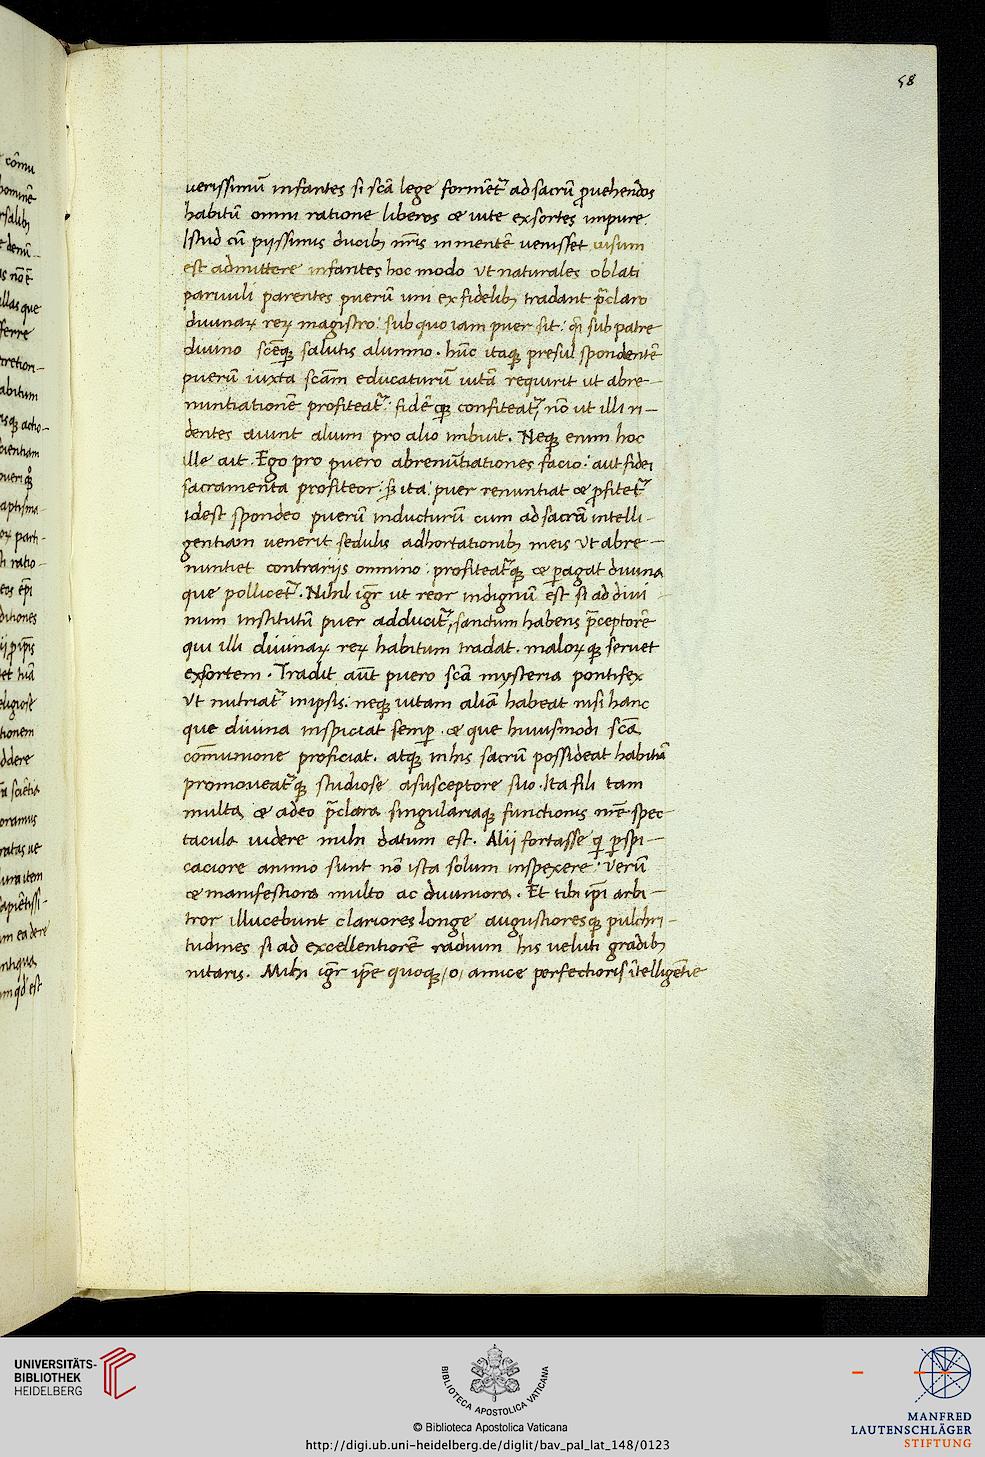 58
uerissimū infantes si scā lege formēt᷑ ad sacrū ꝓuehendos
habitū omni ratione liberos ac uite exsortes impure.
Istud cū pijssimis ducibꝫ nr̄is in mentē uenisset uisum
est admittere infantes hoc modo ut naturales oblati
paruuli parentes puerū uni ex fidelibꝫ tradant p̄claro
diuinaꝝ reꝝ magistro: sub quo iam puer sit: qͥ sub patre
diuino scēqꝫ salutis alumno. hūc itaqꝫ presul spondentē
puerū iuxta scām educaturū uitā requirit ut abre-
nuntiationē profiteat᷑: fidēqꝫ confiteat᷑, nō ut illi ri-
dentes aiunt alium pro alio imbuit. Neqꝫ enim hoc
ille ait. Ego pro puero abrenūtiationes facio: aut fidei
sacramenta profiteor: sꝫ ita: puer renuntiat ac ꝓfitet᷑
idest spondeo puerū inducturū cum ad sacrā intelli-
gentiam uenerit sedulis adhortationibꝫ meis ut abre-
nuntiet contrarijs omnino: profiteat᷑qꝫ ac ꝑagat diuina
que pollicet᷑. Nihil igr̄ ut reor indignū est si ad diui-
num institutū puer adducit᷑, sanctum habens p̄ceptorē
qui illi diuinaꝝ reꝝ habitum tradat. maloꝝqꝫ seruet
exsortem. Tradit aūt puero scā mysteria pontifex
ut nutriat᷑ in ipsis: neqꝫ uitam aliā habeat nisi hanc
que diuina inspiciat semꝑ. ac que huiusmodi scā
com̄unione proficiat. atqꝫ in his sacrū possideat habitū
promoueat᷑qꝫ studiose a susceptore suo. Ita fili tam
multa ac adeo p̄clara singulariaqꝫ functionis nr̄e spec-
tacula uidere mihi datum est. Alij fortasse qͥ ꝑspi-
caciore animo sunt nō ista solum inspexere: uerū
ac manifestiora multo ac diuiniora. Et tibi ip̄i arbi-
tror illucebunt clariores longe augustioresqꝫ pulchri-
tudines si ad excellentiorē radium his ueluti gradibꝫ
nitaris. Mihi igr̄ ip̄e quoqꝫ, o, amice perfectioris ītelligētie
UNIVERSITÄTS-
BIBLIOTHEK
HEIDELBERG
BIBLIOTECA APOSTOLICA VATICANA
© Biblioteca Apostolica Vaticana
http://digi.ub.uni-heidelberg.de/diglit/bav_pal_lat_148/0123
MANFRED
LAUTENSCHLÄGER
STIFTUNG